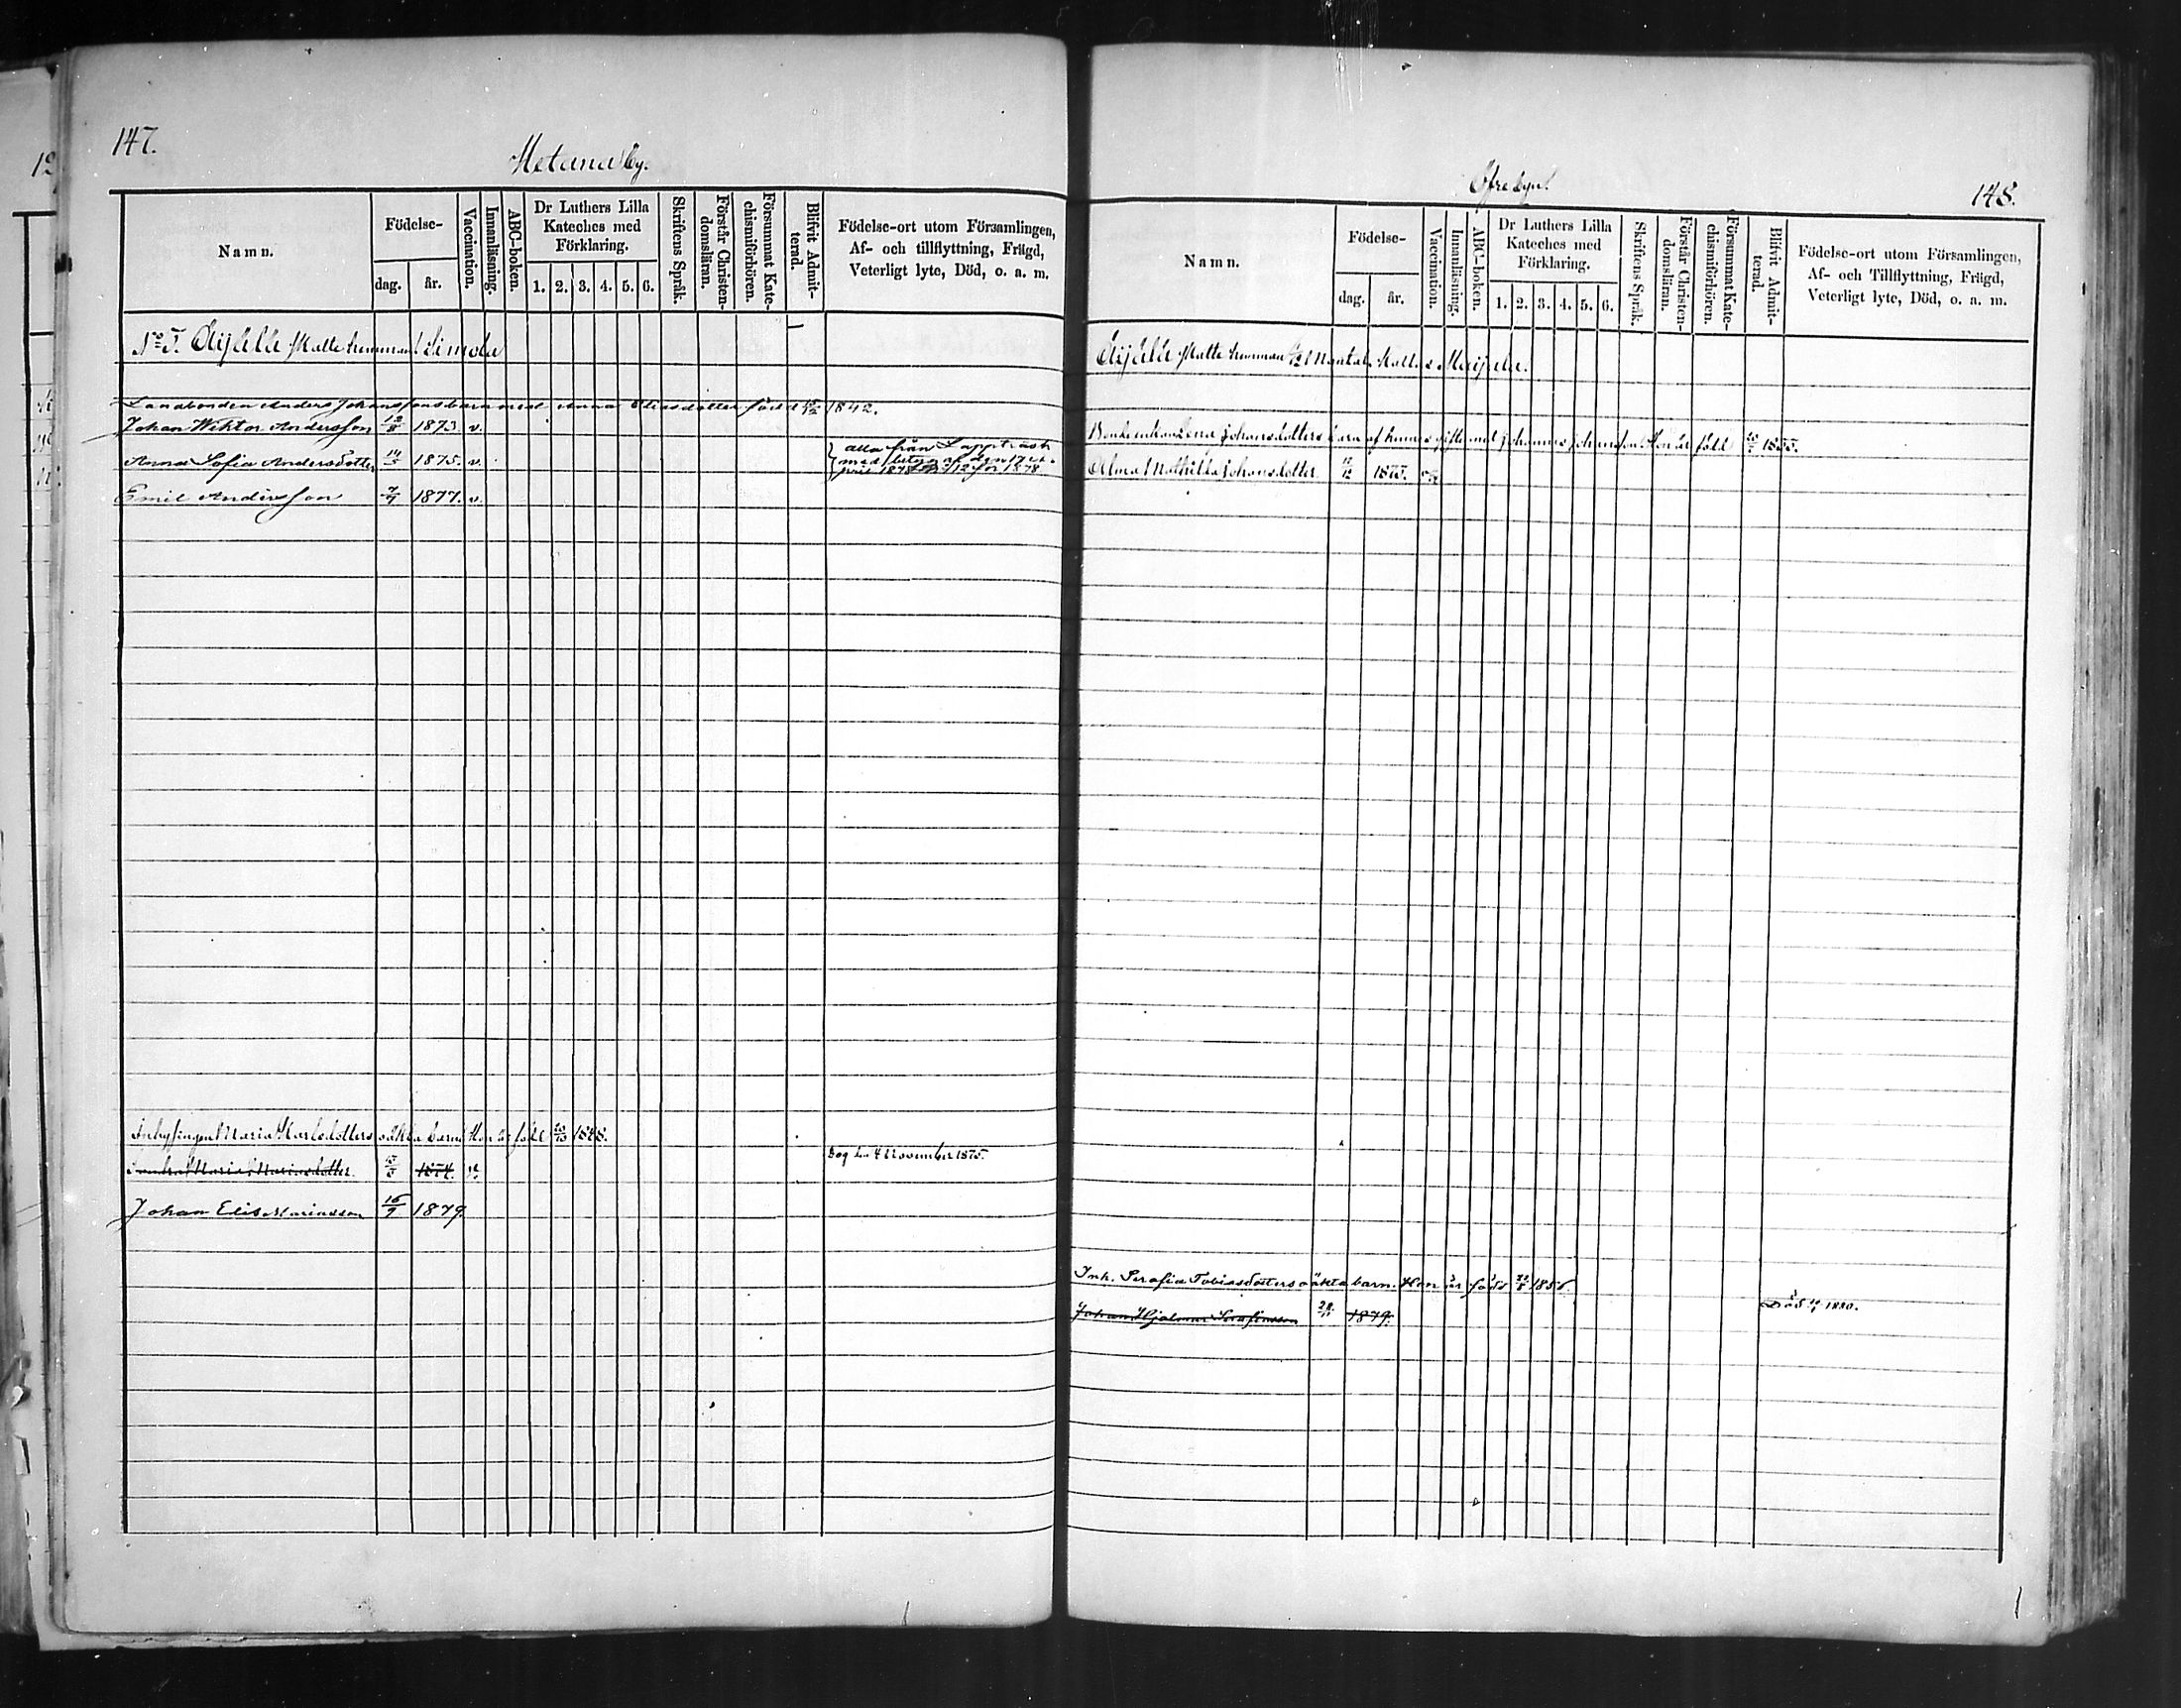 147.
Metana by.
Namn.
Födelse-
dag. år.
Vaccination.
Innanläsning.
ABC-boken.
Dr Luthers Lilla
Kateches med
Förklaring.
1. 2. 3. 4. 5. 6.
Skriftens Språk.
Förstår Christen-
domsläran.
Försummat Kate-
chismiförhören.
Blifvit Admit-
terad.
Födelse-ort utom Församlingen,
Af- och tillflyttning, Frägd,
Veterligt lyte, Död, o. a. m.
No 5. Äijälä Skattehemman Simola
Landbonden Anders Johanssons barn med Anna Eliasdotter född 1842.
Johan Wiktor Andersson 1873. v.
Anna Sofia Andersdotter 14/5 1875. v.
alla från Lappträsk
med betyg af den 17 ap-
ril 1878 No 12 för 1878
Emil Andersson 7/9 1877. v.
Inhysingen Maria Karlsdotters oäkta barn. Hon är född 1848.
Maria Mariasdotter. 1874. v.
Dog den 4 November 1875.
Johan Elis Mariasson 16/9 1879
Öfrebyn.
148.
Namn.
Födelse-
dag. år.
Vaccination.
Innanläsning.
ABC-boken.
Dr Luthers Lilla
Kateches med
Förklaring.
1. 2. 3. 4. 5. 6.
Skriftens Språk.
Förstår Christen-
domsläran.
Försummat Kate-
chismiförhören.
Blifvit Admit-
terad.
Födelse-ort utom Församlingen,
Af- och Tillflyttning, Frägd,
Veterligt lyte, Död, o. a. m.
Äijälä Skattehemman mantal Maijala.
Lena Johansdotters barn af hennes gifte med Johannes Johansson. Hon är född 1835.
Alma Mathilda Johansdotter. 1875.
Inh. Serafia Tobiasdotters oäkta barn. Hon är född 1856.
Johan Hjalmar Serafiasson 1879.
Död 1880.